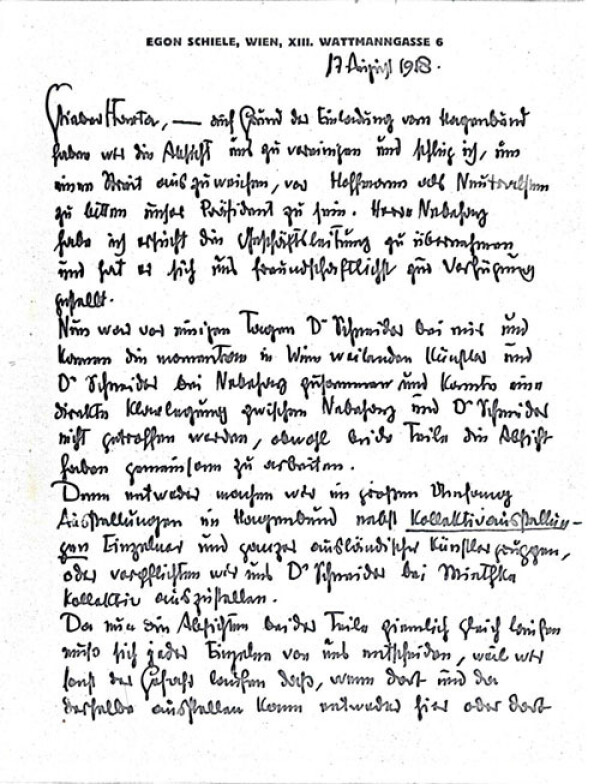 EGON SCHIELE, WIEN, XIII. WATTMANNGASSE 6
17 August 1918.
Lieber Harta, — auf Grund der Einladung vom Hagenbund
haben wir die Absicht uns zu vereinigen und schlug ich, um
einen Streit auszuweichen, vor Hoffmann als Neutralsten
zu bitten unser Präsident zu sein. Herrn Nebehay
habe ich ersucht die Geschäftsleitung zu übernehmen
und hat er sich uns freundschaftlichst zur Verfügung
gestellt.
Nun war vor einigen Tagen Dr Schneider bei mir und
kamen die momentan in Wien weilenden Künstler und
Dr Schneider bei Nebehay zusammen und konnte eine
direkte Klarlegung zwischen Nebehay und Dr Schneider
nicht getroffen werden, obwohl beide Teile die Absicht
haben gemeinsam zu arbeiten.
Denn entweder machen wir im großen Umfang
Ausstellungen im Hagenbund nebst Kollektivausstellun-
gen Einzelner und ganzer ausländischer Künstlergruppen,
oder verpflichten wir uns Dr Schneider bei Miethke
kollektiv auszustellen.
Da nun die Absichten beider Teile ziemlich gleich laufen
muss sich jeder Einzelne von uns entscheiden, weil wir
sonst der Gefahr laufen dass, wenn dort und da
derselbe ausstellen kann entweder hier oder dort